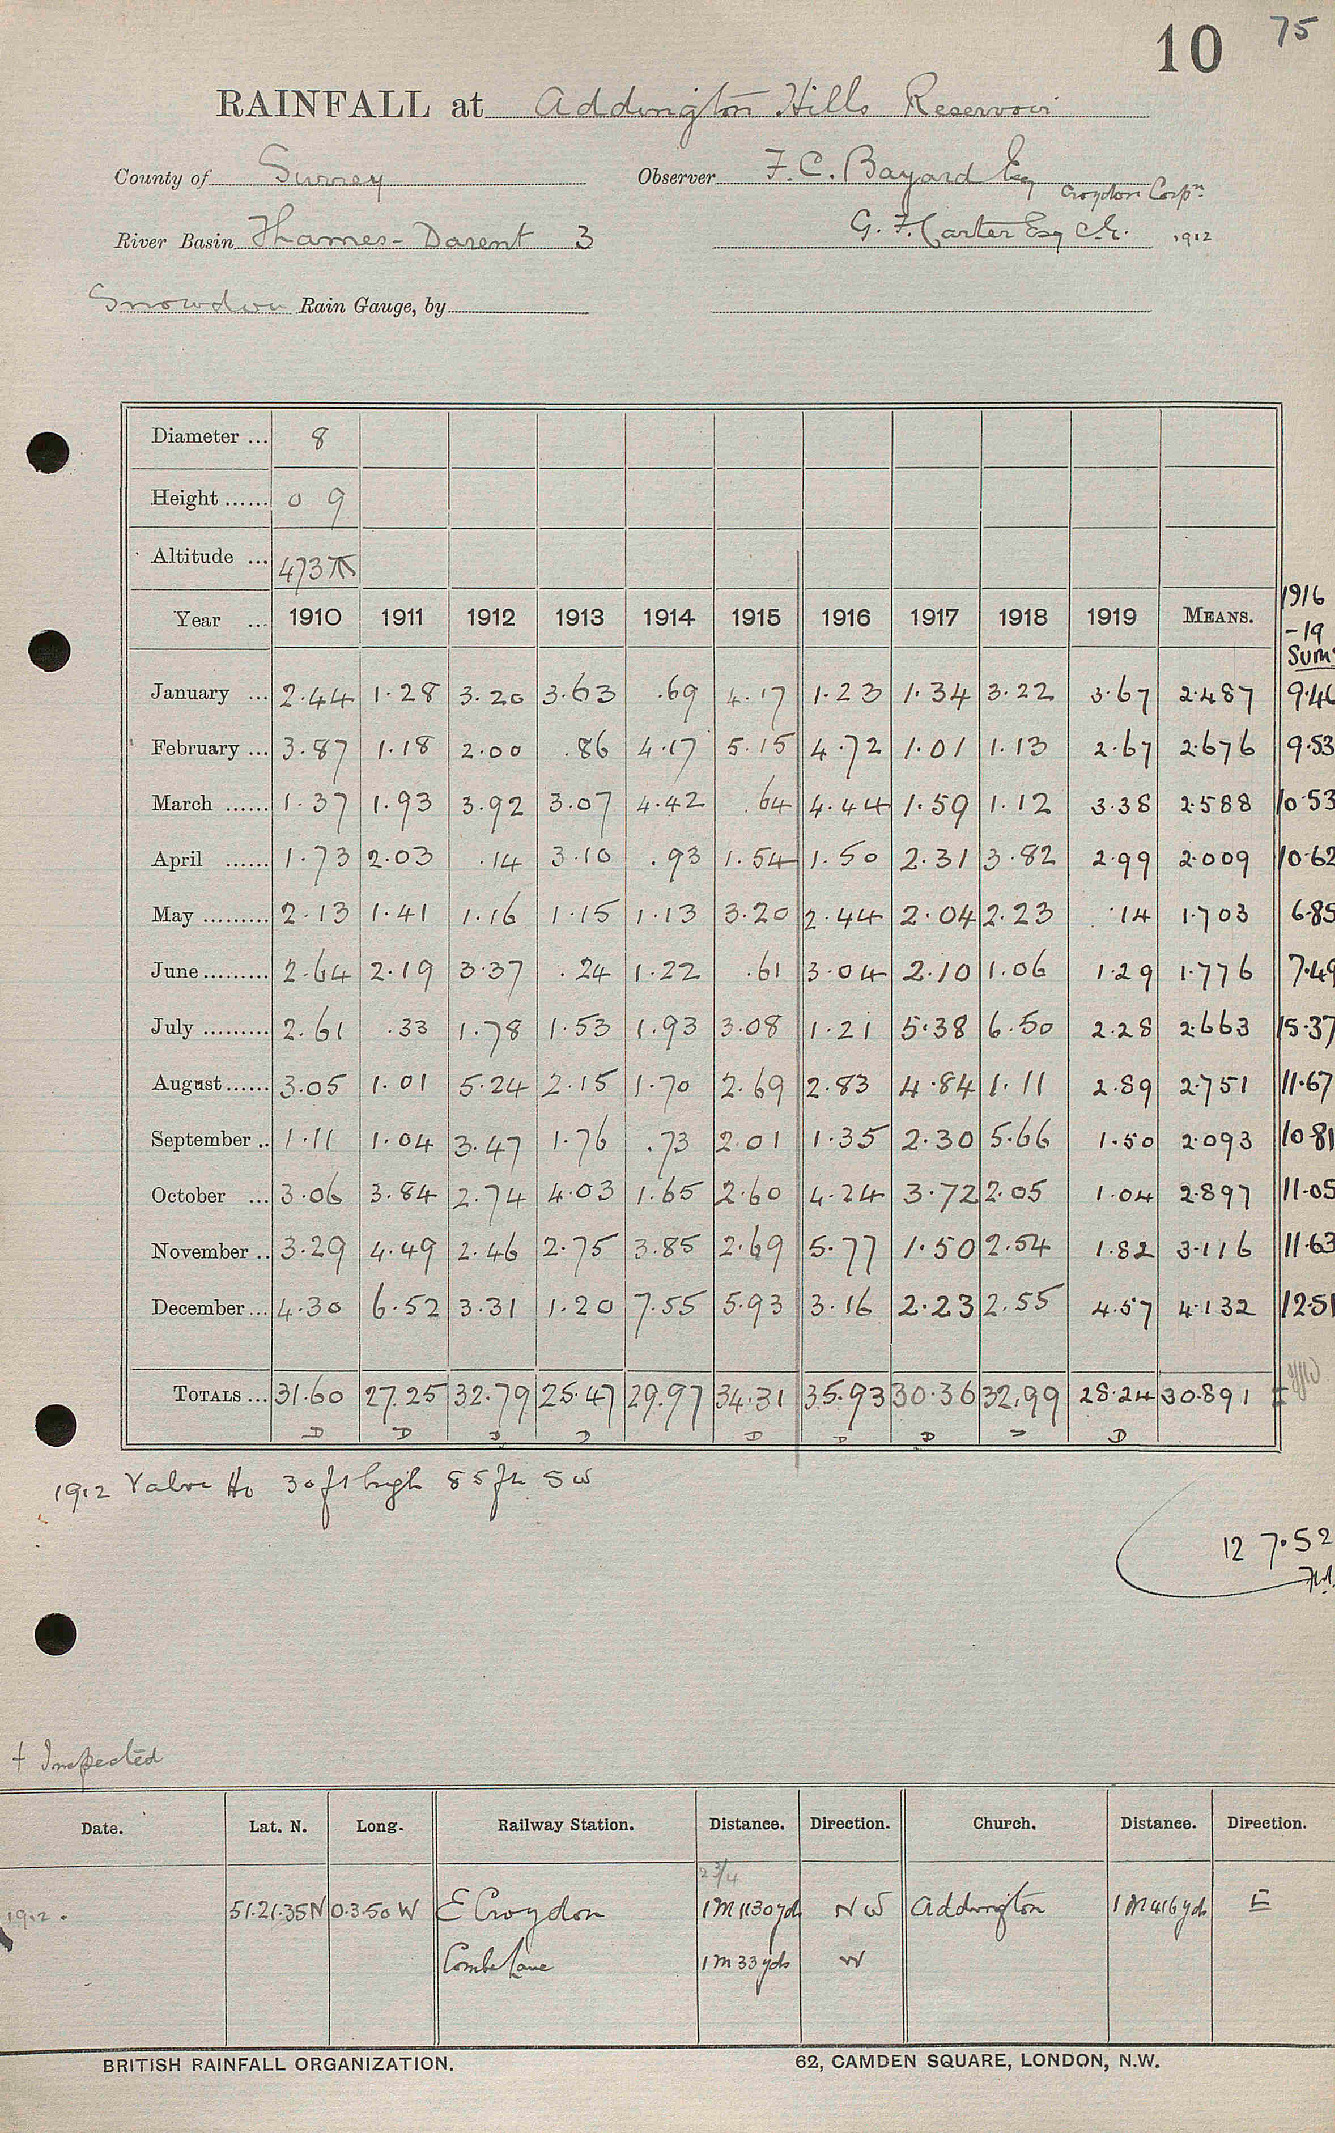 10 75
RAINFALL at Addington Hills Reservoir
County of Surrey Observer F. C. Bayard Esq
Croydon Corpn
River Basin Thames - Darent 3 G. F. Carter Esq C.E. 1912
Snowdon Rain Gauge, by
Diameter ... 8
Height ...... 0 9
Altitude ... 473
Year ... 1910 1911 1912 1913 1914 1915 1916 1917 1918 1919 MEANS. 1916 -19 Sum
January ... 2.44 1.28 3.20 3.63 .69 4.17 1.23 1.34 3.22 3.67 2.487 9.46
February ... 3.87 1.18 2.00 .86 4.17 5.15 4.72 1.01 1.13 2.67 2.676 9.53
March ...... 1.37 1.93 3.92 3.07 4.42 .64 4.44 1.59 1.12 3.38 2.588 10.53
April ...... 1.73 2.03 .14 3.10 .93 1.54 1.50 2.31 3.82 2.99 2.009 10.62
May ......... 2.13 1.41 1.16 1.15 1.13 3.20 2.44 2.04 2.23 .14 1.703 6.85
June ......... 2.64 2.19 3.37 .24 1.22 .61 3.04 2.10 1.06 1.29 1.776 7.49
July ......... 2.61 .33 1.78 1.53 1.93 3.08 1.21 5.38 6.50 2.28 2.663 15.37
August ...... 3.05 1.01 5.24 2.15 1.70 2.69 2.83 4.84 1.11 2.89 2.751 11.67
September .. 1.11 1.04 3.47 1.76 .73 2.01 1.35 2.30 5.66 1.50 2.093 10.81
October ... 3.06 3.84 2.74 4.03 1.65 2.60 4.24 3.72 2.05 1.04 2.897 11.05
November .. 3.29 4.49 2.46 2.75 3.85 2.69 5.77 1.50 2.54 1.82 3.116 11.63
December ... 4.30 6.52 3.31 1.20 7.55 5.93 3.16 2.23 2.55 4.57 4.132 12.51
TOTALS ... 31.60 27.25 32.79 25.47 29.97 34.31 35.93 30.36 32.99 28.24 30.891
D D D D D D D D
1912 Valve Ho 30 ft high 85 ft SW
127.52
† Inspected
Date. Lat. N. Long. Railway Station. Distance. Direction. Church. Distance. Direction.
2 3/4
1912. 51.21.35N 0.3.50 W E Croydon 1M 1130 yds NW Addington 1M 416 yds E
Combe Lane 1 m 33 yds W
BRITISH RAINFALL ORGANIZATION. 62, CAMDEN SQUARE, LONDON, N.W.